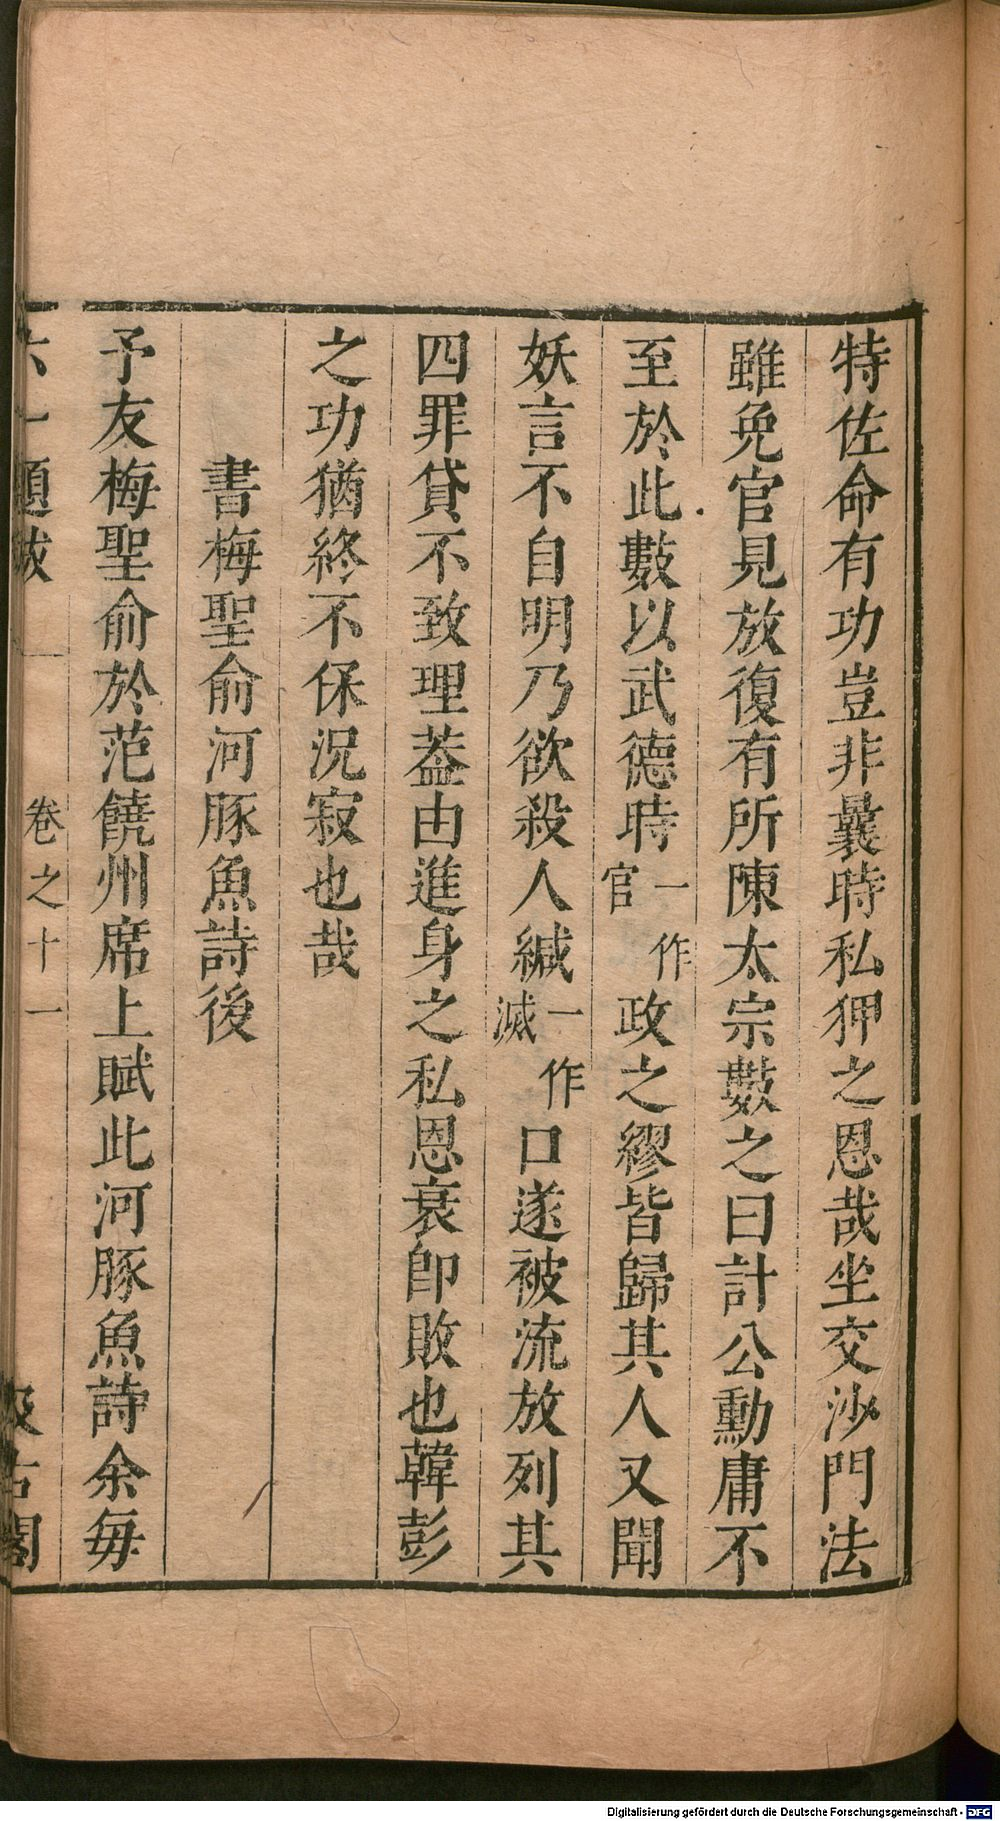 特佐命有功豈非曩時私狎之恩哉坐交沙門法
雖免官見放復有所陳太宗數之曰計公勳庸不
至於此數以武德時一作官政之繆皆歸其人又聞
妖言不自明乃欲殺人緘一作滅口遂被流放列其
四罪貸不致理蓋由進身之私恩衰即敗也韓彭
之功猶終不保況寂也哉
書梅聖俞河豚魚詩後
予友梅聖俞於范饒州席上賦此河豚魚詩余每
六一題跋 卷之十一 汲古閣
Digitalisierung gefördert durch die Deutsche Forschungsgemeinschaft - DFG